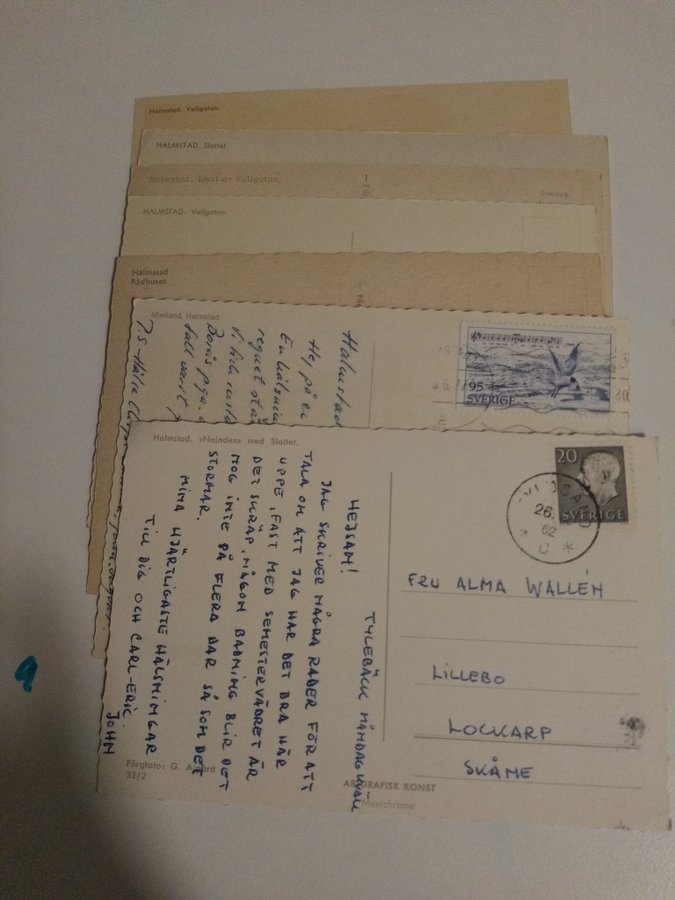 Halmstad. Vallgatan.
HALMSTAD. Slottet.
Halmstad. Idyll av Vallgatan
Svensk
HALMSTAD. Vallgatan
Halmstad
Rådhuset
Miniland. Halmstad
Halmstad
Hej på
95
SVERIGE
Halmstad. »Najaden» med Slottet.
20
SVERIGE
26.
62
TYLEBÄCK MÅNDAG KVÄLL
HEJSAN!
JAG SKRIVER NÅGRA RADER FÖR ATT
TALA OM ATT JAG HAR DET BRA HÄR
UPPE, FAST MED SEMESTERVÄDRET ÄR
DET SKRAP, NÅGON BADNING BLIR DET
NOG INTE PÅ FLERA DAR SÅ SOM DET
STORMAR.
MINA HJÄRTLIGASTE HÄLSNINGAR
TILL DIG OCH CARL-ERIC.
JOHN
FRU ALMA WALLÉN
LILLEBO
LOCKARP
SKÅNE
Färgfoto: G.
32/2
GRAFISK KONST
Mexichrome